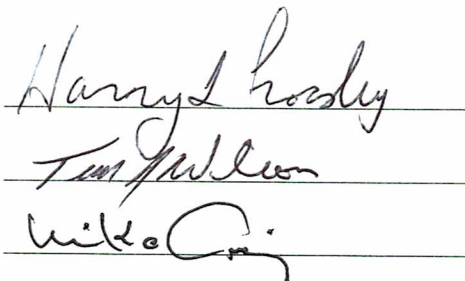 Harry L Crosley
Tim Wilson
Mike Craig